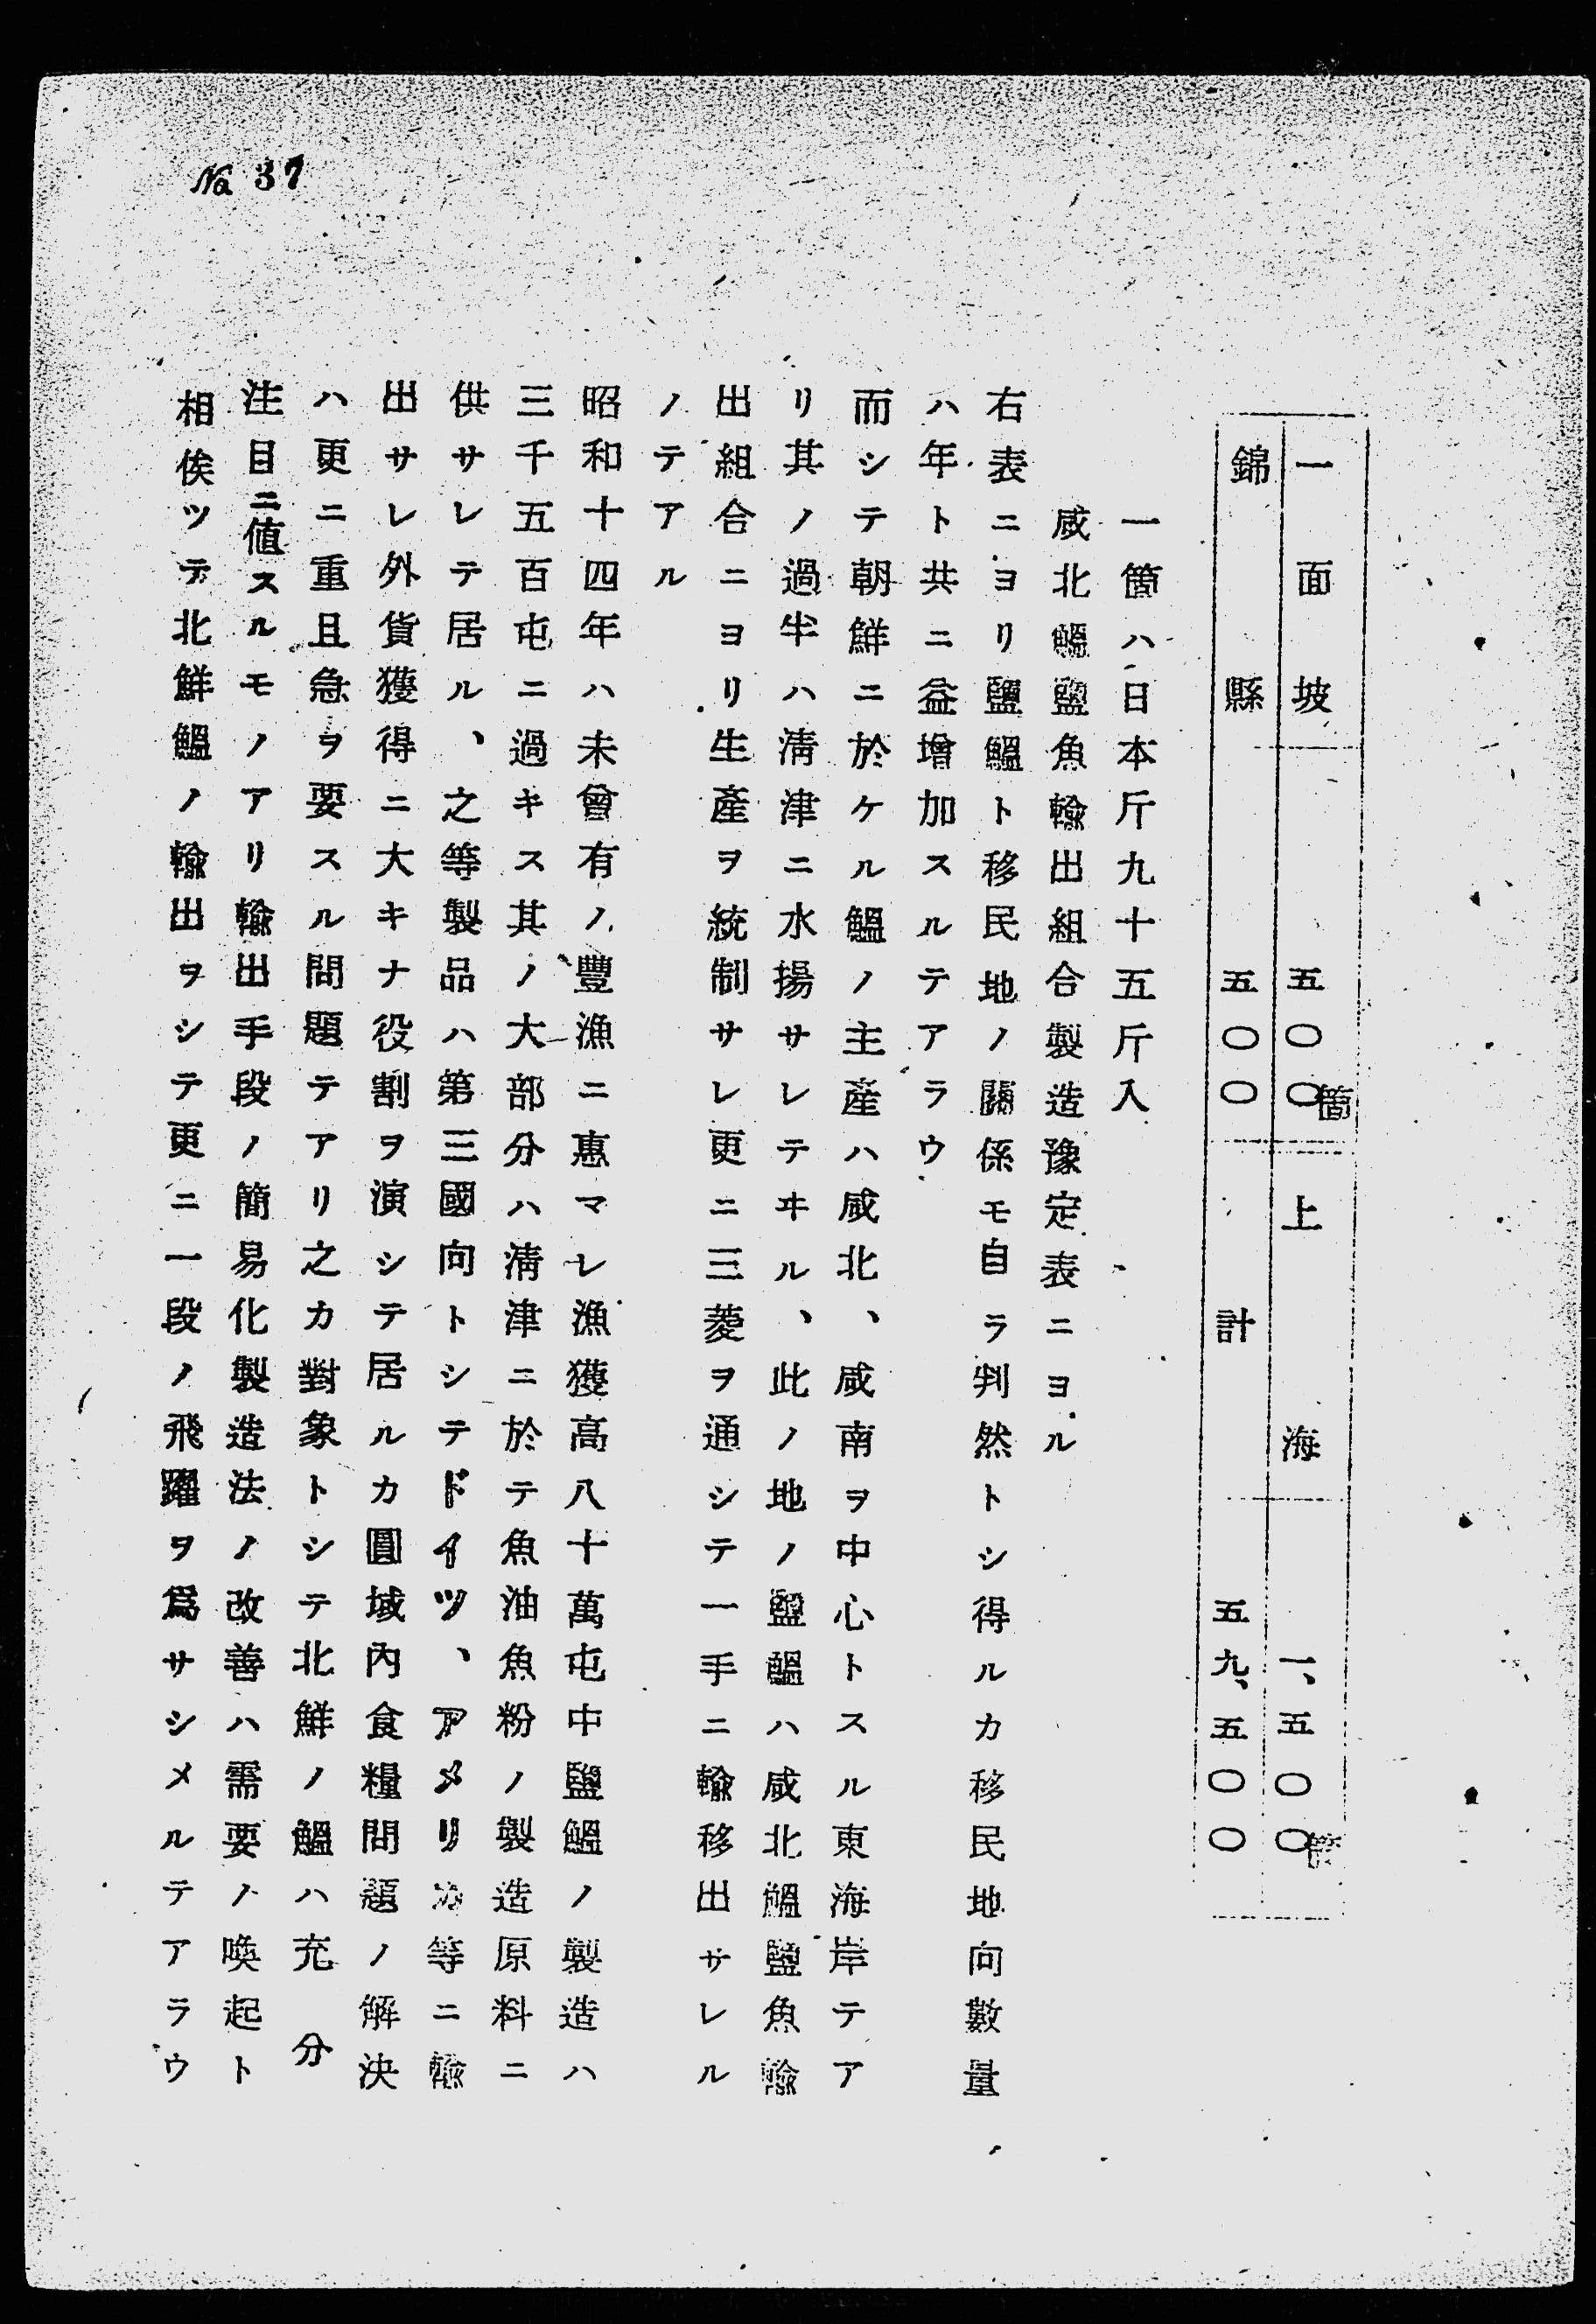 No 37
一面坡 五〇〇箇 上海 一、五〇〇箇
錦縣 五〇〇 計 五九、五〇〇
一箇ハ日本斤九十五斤入
咸北鰮鹽魚輸出組合製造豫定表ニヨル
右表ニヨリ鹽鰮ト移民地ノ關係モ自ラ判然トシ得ルカ移民地向數量
ハ年ト共ニ益增加スルテアラウ
而シテ朝鮮ニ於ケル鰮ノ主產ハ咸北、咸南ヲ中心トスル東海岸テア
リ其ノ過半ハ淸津ニ水揚サレテヰル、此ノ地ノ鹽鰮ハ咸北鰮鹽魚輸
出組合ニヨリ生產ヲ統制サレ更ニ三菱ヲ通シテ一手ニ輸移出サレル
ノテアル
昭和十四年ハ未曾有ノ豐漁ニ惠マレ漁獲高八十萬屯中鹽鰮ノ製造ハ
三千五百屯ニ過キス其ノ大部分ハ淸津ニ於テ魚油魚粉ノ製造原料ニ
供サレテ居ル、之等製品ハ第三國向トシテドイツ、アメリカ等ニ輸
出サレ外貨獲得ニ大キナ役割ヲ演シテ居ルカ圓域內食糧問題ノ解決
ハ更ニ重且急ヲ要スル問題テアリ之カ對象トシテ北鮮ノ鰮ハ充分
注目ニ値スルモノアリ輸出手段ノ簡易化製造法ノ改善ハ需要ノ喚起ト
相俟ツテ北鮮鰮ノ輸出ヲシテ更ニ一段ノ飛躍ヲ爲サシメルテアラウ